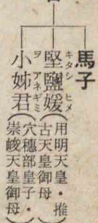 馬子
堅鹽媛
キタシヒメ
用明天皇・推
古天皇御母
小姉君
ヲアネギミ
穴穗部皇子・
崇峻天皇御母